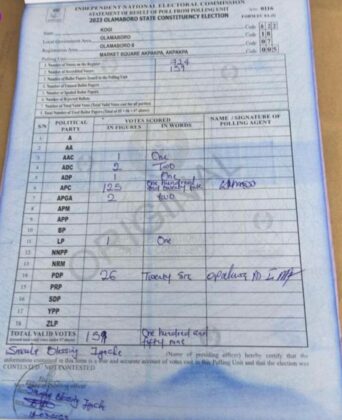 INDEPENDENT NATIONAL ELECTORAL COMMISSION
STATEMENT OF RESULT OF POLL FROM POLLING UNIT
2023 OLAMABORO STATE CONSTITUENCY ELECTION
State KOGI Code
Local Government Area OLAMABORO Code 18
Registration Area OLAMABORO Code 07
Polling Unit MARKET SQUARE AKPAKPA, AKPAKPA Code 005
1. Number of Voters on the Register 724
2. Number of Accredited Voters 159
3. Number of Ballot Papers Issued to the Polling Unit
4. Number of Unused Ballot Papers
5. Number of Spoiled Ballot Papers
6. Number of Rejected Ballots
7. Number of Total Valid Votes
8. Total Number of Used Ballot Papers
S/N POLITICAL PARTY VOTES SCORED NAME / SIGNATURE OF POLLING AGENT
IN FIGURES IN WORDS
1 A
2 AA
3 AAC One
4 ADC 2 Two
5 ADP 1 One
6 APC 125 One hundred and twenty five
7 APGA 2 Two
8 APM
9 APP
10 BP
11 LP 1 One
12 NNPP
13 NRM
14 PDP 26 Twenty Six
15 PRP
16 SDP
17 YPP
18 ZLP
TOTAL VALID VOTES 159 One hundred and fifty nine
ORIGINAL
Blessing (Name of presiding officer) hereby certify that the
information contained in this form is a true and accurate account of votes cast in this Polling Unit and that the election was
CONTESTED / NOT CONTESTED
Blessing